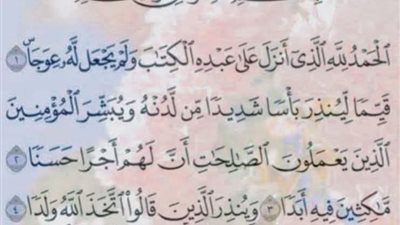 ٱلْحَمْدُ لِلَّهِ ٱلَّذِىٓ أَنزَلَ عَلَىٰ عَبْدِهِ ٱلْكِتَٰبَ وَلَمْ يَجْعَل لَّهُۥ عِوَجَاۜ ١
قَيِّمًا لِّيُنذِرَ بَأْسًا شَدِيدًا مِّن لَّدُنْهُ وَيُبَشِّرَ ٱلْمُؤْمِنِينَ
ٱلَّذِينَ يَعْمَلُونَ ٱلصَّٰلِحَٰتِ أَنَّ لَهُمْ أَجْرًا حَسَنًا ٢
مَّٰكِثِينَ فِيهِ أَبَدًا ٣ وَيُنذِرَ ٱلَّذِينَ قَالُوا۟ ٱتَّخَذَ ٱللَّهُ وَلَدًا ٤